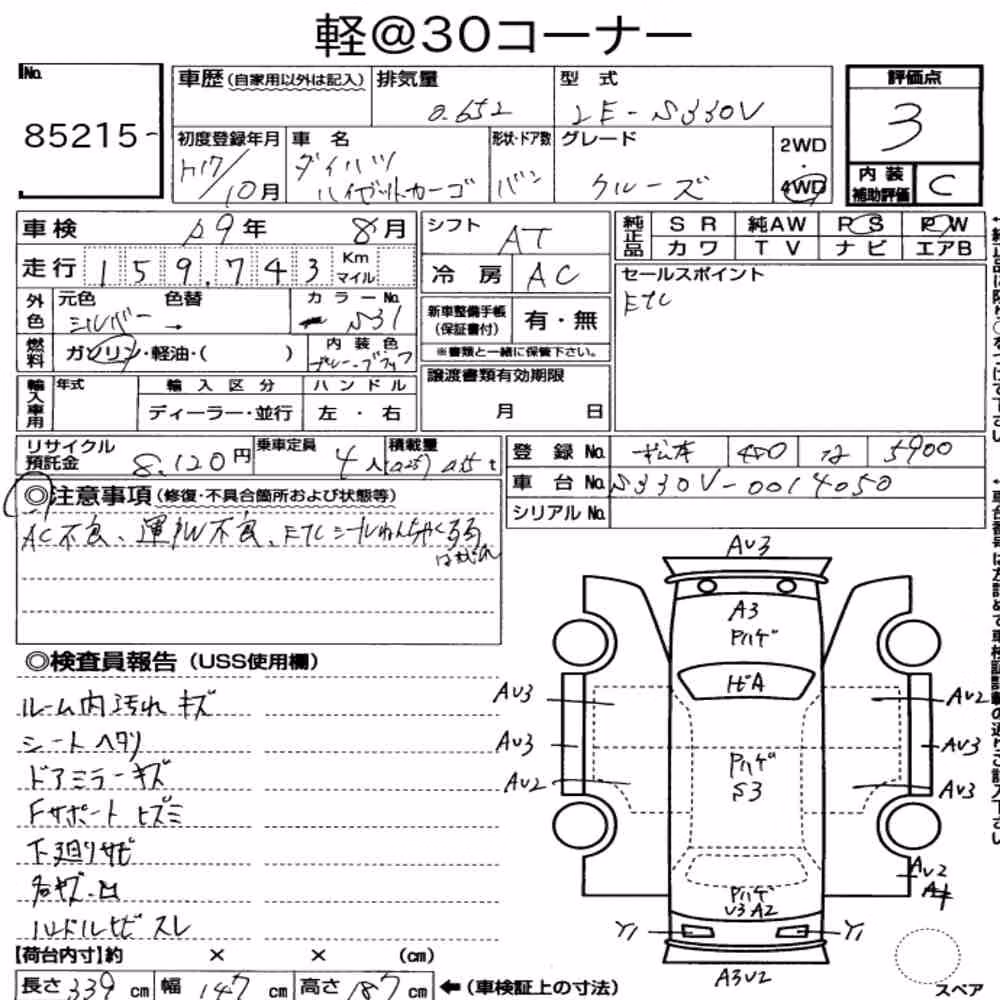 軽@30コーナー
No.
85215-
車歴(自家用以外は記入)
排気量
0.652
型式
LE-S330V
評価点
3
初度登録年月
H17/10月
車名
ダイハツ
ハイゼットカーゴ
形状・ドア数
バン
グレード
クルーズ
2WD
・
4WD
内装
補助評価
C
車検
29年
8月
シフト
AT
純正品
SR
純AW
PS
PW
カワ
TV
ナビ
エアB
走行
159,743
Km
マイル
冷房
AC
セールスポイント
ETC
外色
元色
シルバー
色替
→
カラーNo.
S31
新車整備手帳
(保証書付)
有・無
※書類と一緒に保管下さい。
燃料
ガソリン・軽油・( )
内装色
グレー・ブラック
輸入車用
年式
輸入区分
ディーラー・並行
ハンドル
左・右
譲渡書類有効期限
月 日
リサイクル
預託金
8.120円
乗車定員
4人
積載量
登録No.
松本
450
5900
車台No.
S330V-0014050
シリアルNo.
◎注意事項(修復・不具合箇所および状態等)
AC不良、運PW不良、ETCシールねんちゃく弱
はがれ
◎検査員報告(USS使用欄)
ルーム内汚れ キズ
シートヘタリ
ドアミラーキズ
Fサポートヒズミ
下廻りサビ
各キズ・凹
ハンドルセビ スレ
【荷台内寸】約 × × (cm)
長さ339cm
幅147cm
高さ187cm
←(車検証上の寸法)
AU3
A3
Pハゲ
ヒビA
AU3
AU2
AU3
AU3
Pハゲ
S3
AU2
AU3
Pハゲ
U3 A2
AU2
Y1
Y1
A3U2
スペア